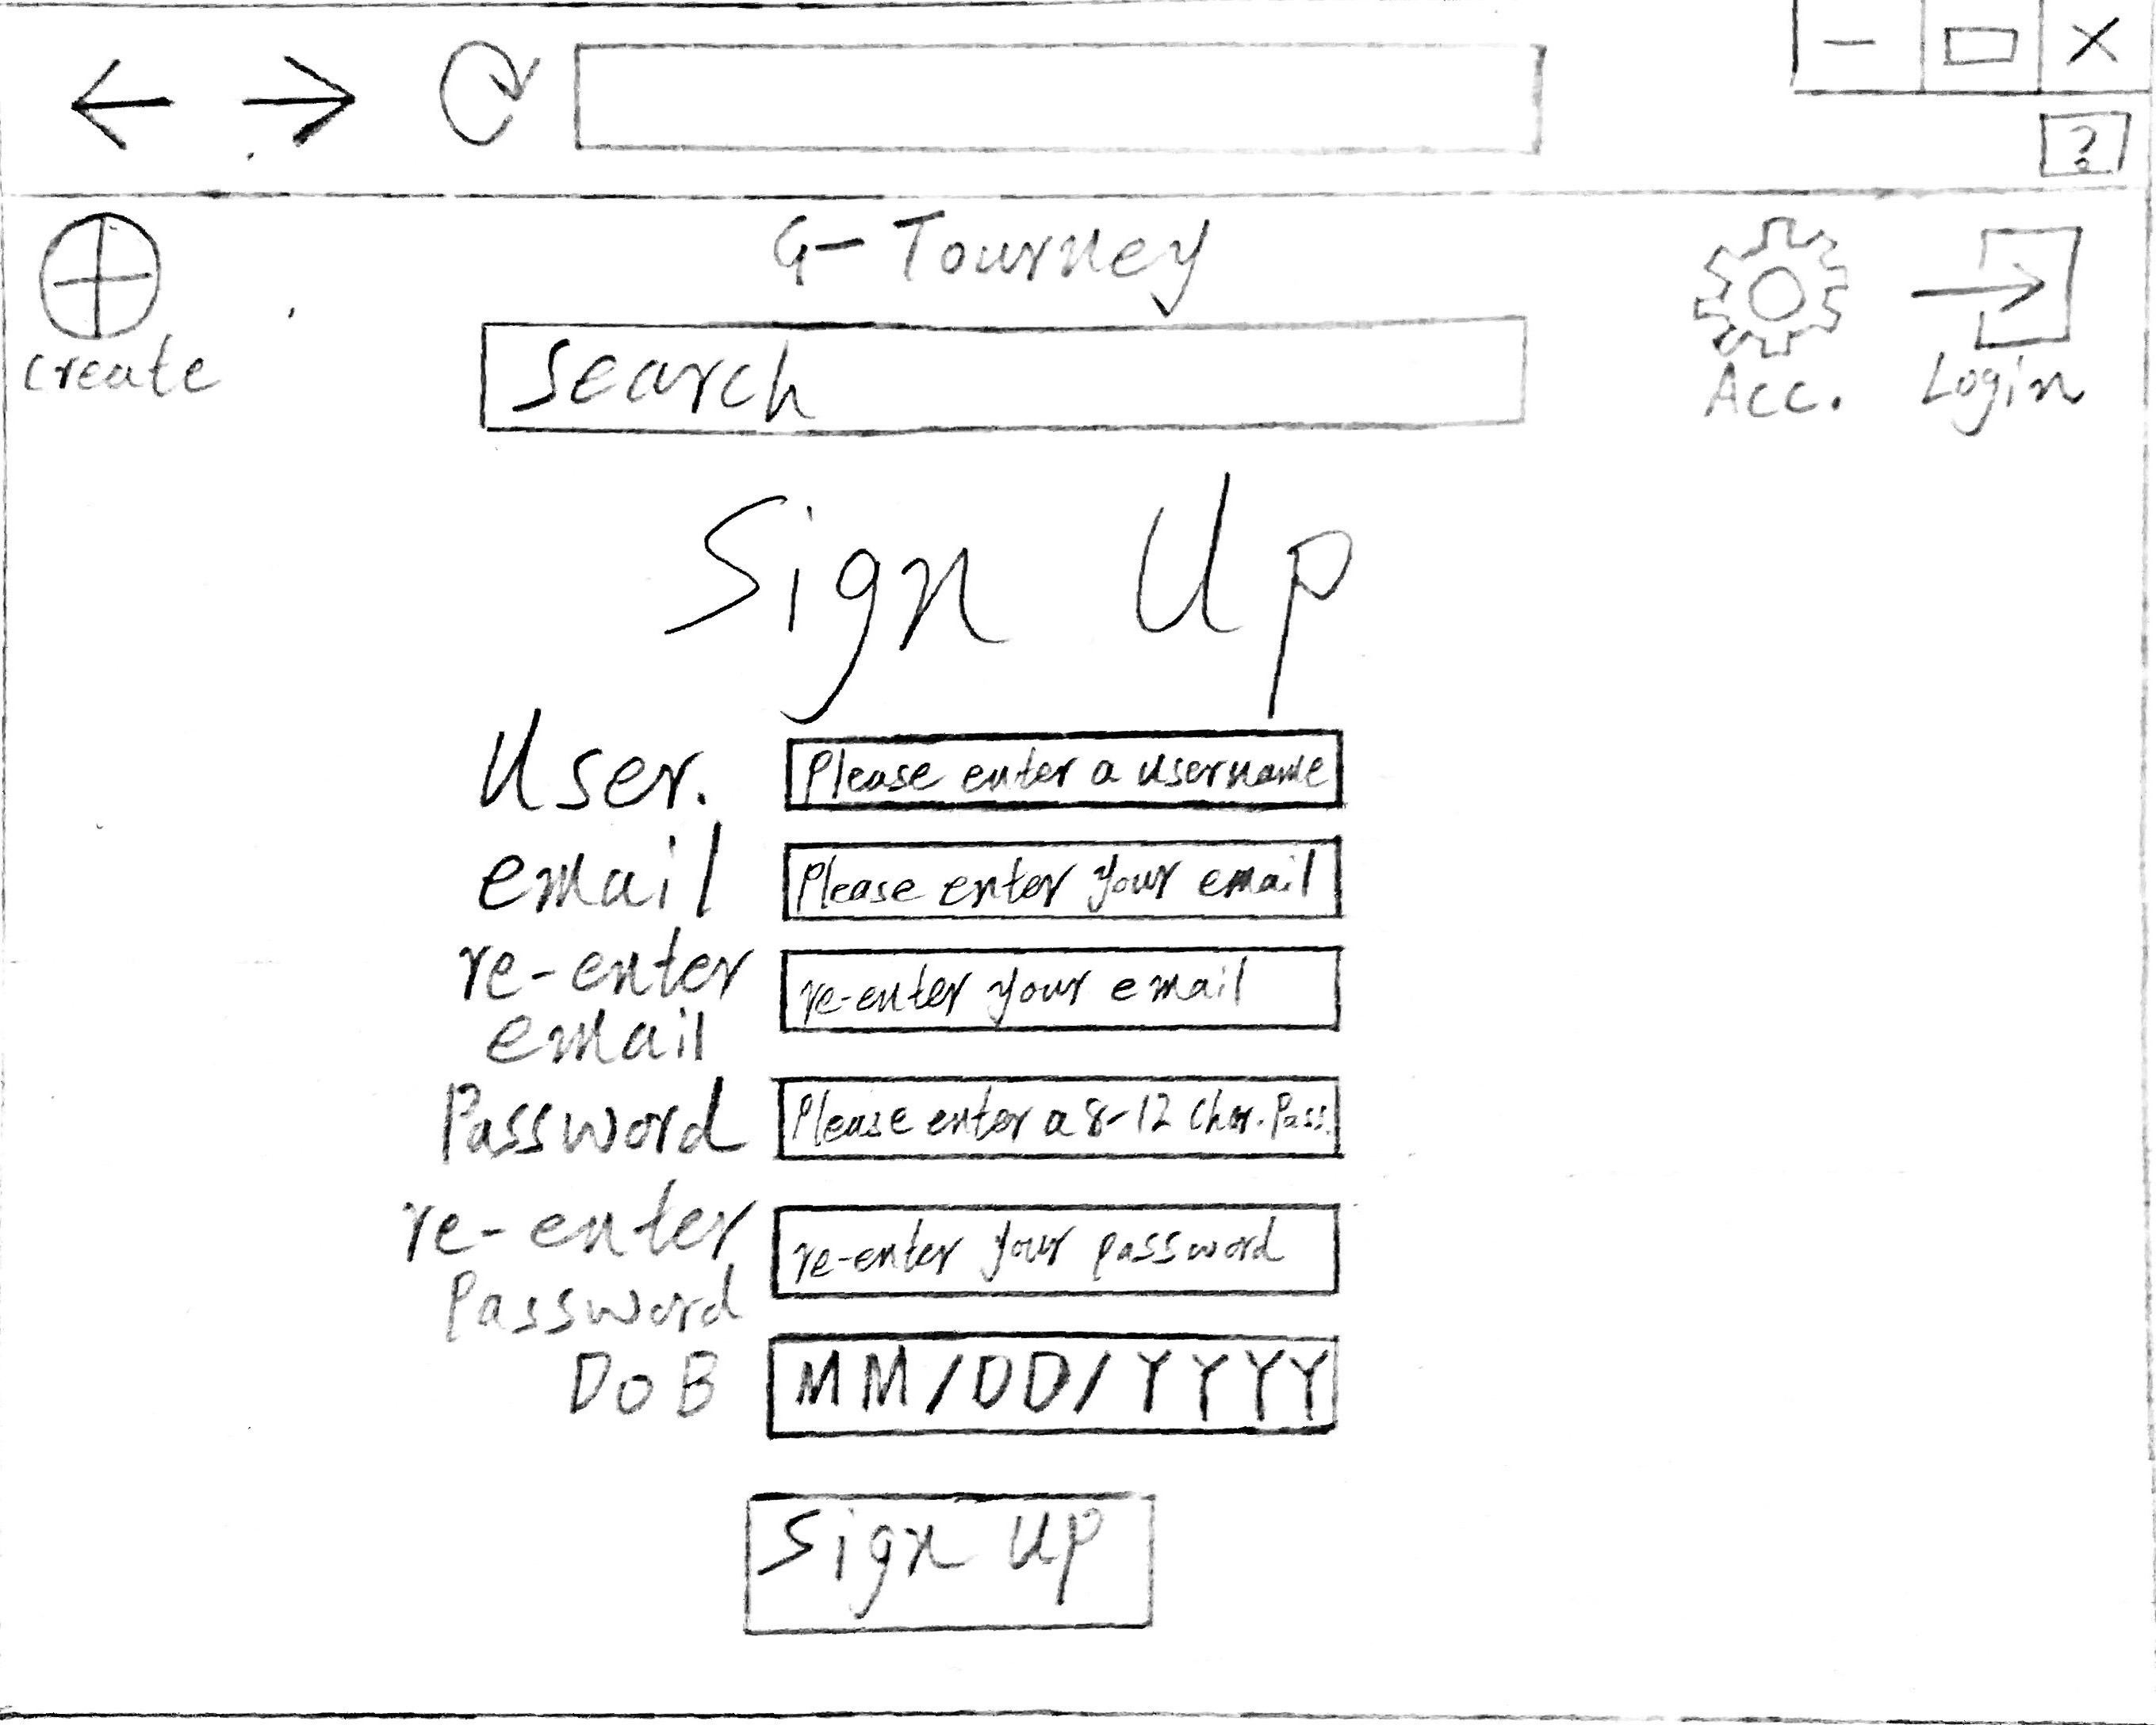 ?
G-Tourney
create
Search
Acc.
Login
Sign Up
User.
Please enter a username
email
Please enter your email
re-enter
email
re-enter your email
Password
Please enter a 8-12 Char. Pass.
re-enter
Password
re-enter your password
DoB
MM/DD/YYYY
Sign up